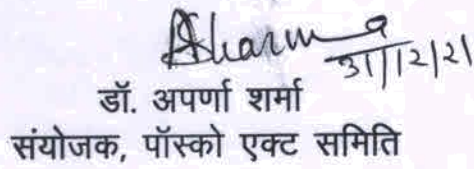 Asharma
31/12/21
डॉ. अपर्णा शर्मा
संयोजक, पॉस्को एक्ट समिति